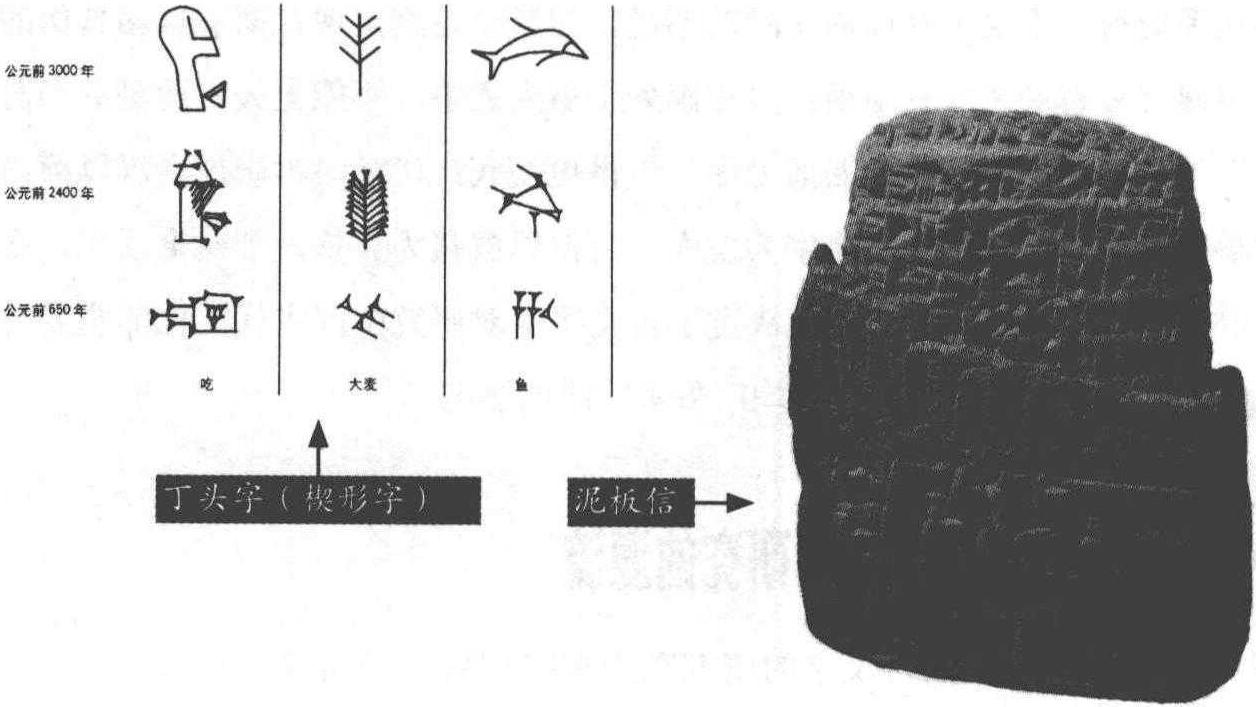 公元前3000年
公元前2400年
公元前650年
吃 大麦 鱼
丁头字(楔形字)
泥板信